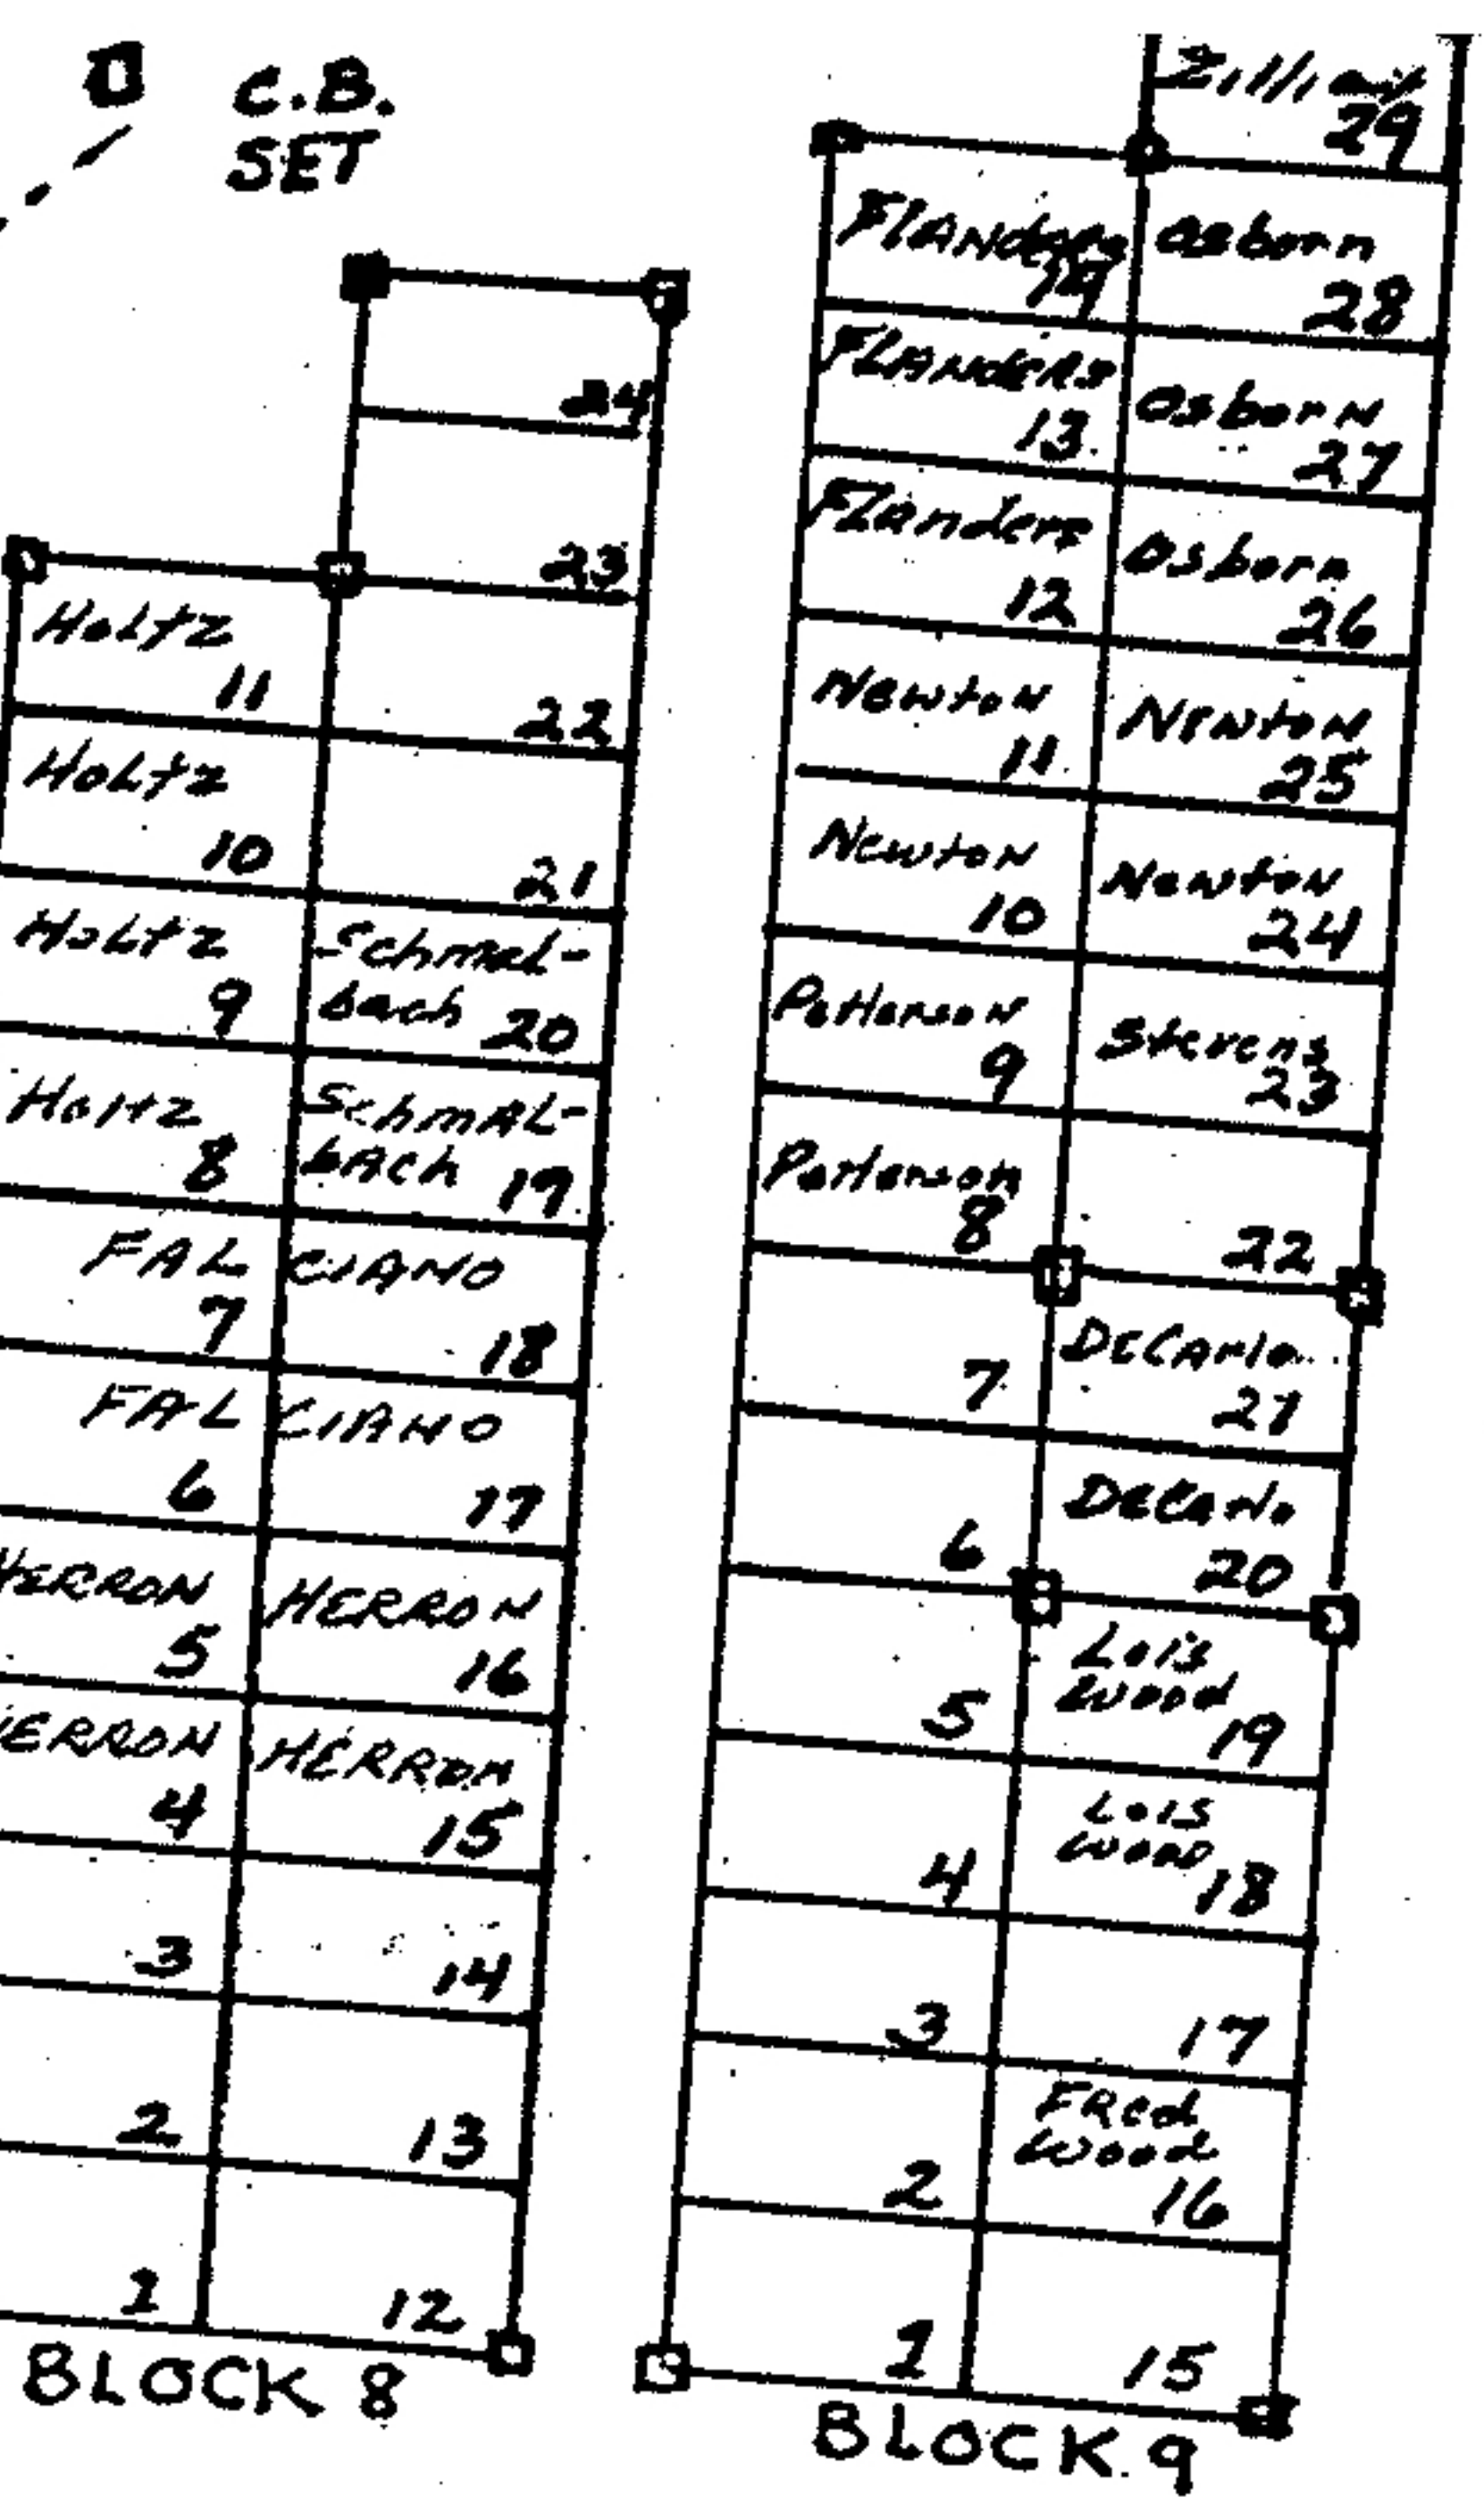 C.B.
SET
24
23
Holtz
11
22
Holtz
10
21
Holtz
9
Schmal-
bach 20
Holtz
8
SchmAL-
bACh 19
FAL CIANO
7
18
FAL CIANO
6
17
HERRON
5
HERRON
16
ERRON
4
HERRON
15
3
14
2
13
1
12
BLOCK 8
29
Flanders
14
Osborn
28
FLANders
13
OsborN
27
Flanders
12
Osborn
26
Newton
11
NEWtoN
25
NewtoN
10
Newton
24
PattersoN
9
Stevens
23
Patterson
8
22
7
DeCArlo
21
6
DeCarlo
20
5
Lois
Wood
19
4
Lois
Wood
18
3
17
2
FRed
Wood
16
1
15
BLOCK 9